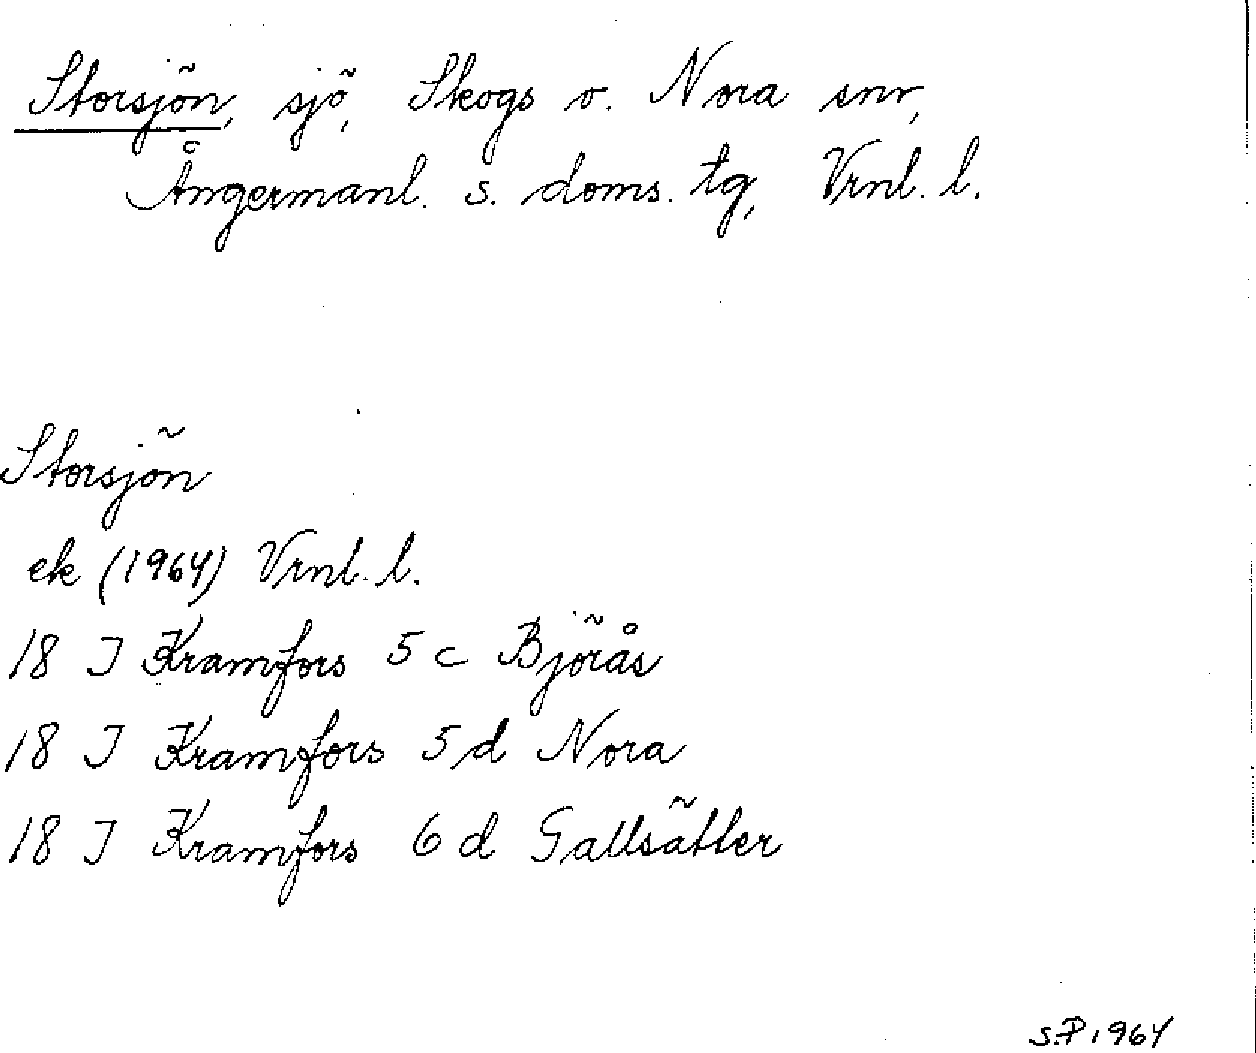 Storsjön, sjö, Skogs o. Nora snr,
Ångermanl. s. doms. tg, Vrnl. l.
Storsjön
ek (1964) Vrnl. l.
18 J Kramfors 5 c Björås
18 J Kramfors 5 d Nora
18 J Kramfors 6 d Gallsätter
S.P. 1964